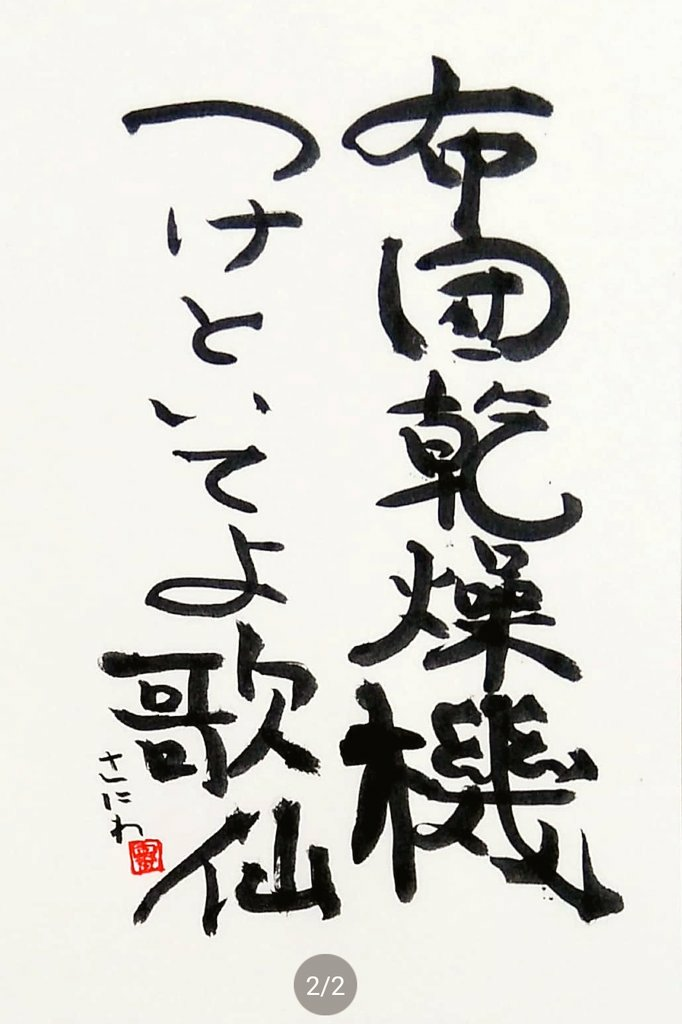 布団乾燥機
つけといてよ歌仙
さにわ
2/2